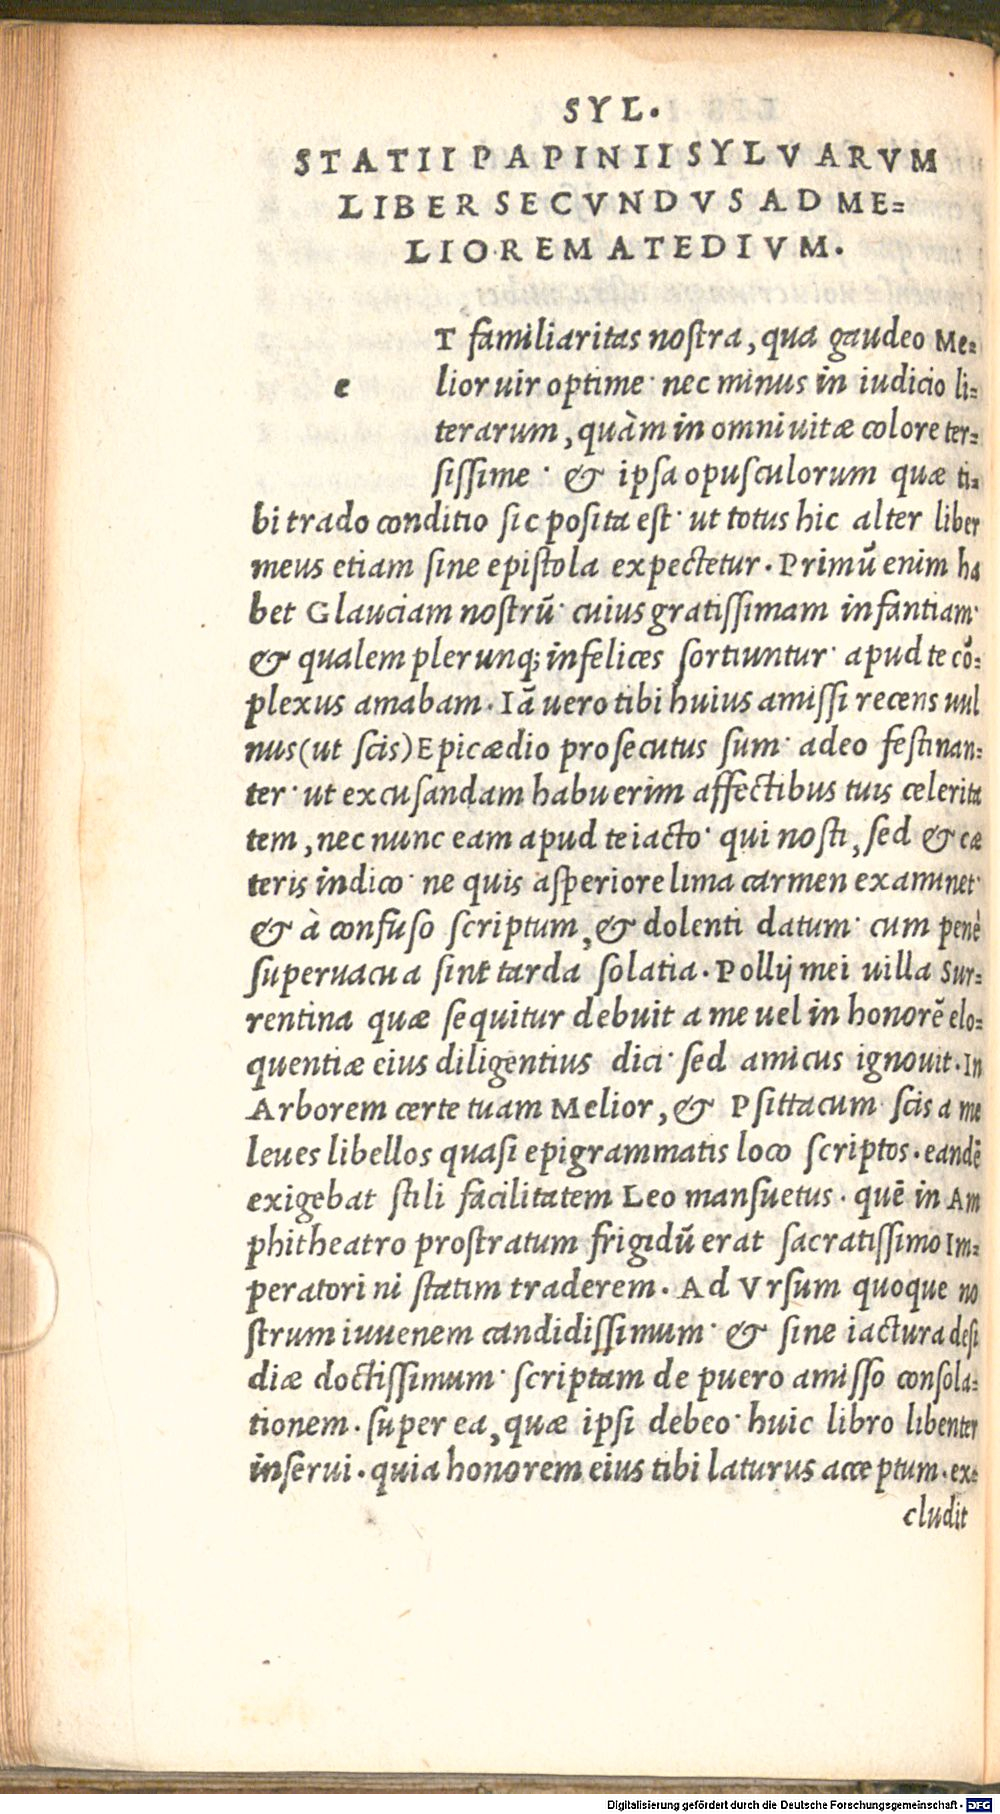 SYL.
STATII PAPINII SYLVARVM
LIBER SECVNDVS AD ME=
LIOREM ATEDIVM.
T familiaritas nostra, qua gaudeo Me=
e lior uir optime· nec minus in iudicio li=
terarum, quàm in omni uitæ colore ter=
sissime· & ipsa opusculorum quæ ti=
bi trado conditio sic posita est· ut totus hic alter liber
meus etiam sine epistola expectetur. Primũ enim ha
bet Glauciam nostrũ· cuius gratissimam infantiam·
& qualem plerunq; infelices sortiuntur· apud te cõ=
plexus amabam. Iã uero tibi huius amissi recens uul
nus(ut scis)Epicædio prosecutus sum· adeo festinan=
ter· ut excusandam habuerim affectibus tuis celerita
tem, nec nunc eam apud te iacto· qui nosti, sed & cæ
teris indico· ne quis asperiore lima carmen examinet·
& à confuso scriptum, & dolenti datum· cum penè
superuacua sint tarda solatia. Pollij mei uilla Sur=
rentina quæ sequitur debuit a me uel in honorẽ elo=
quentiæ eius diligentius dici· sed amicus ignouit. In
Arborem certe tuam Melior, & Psittacum scis a me
leues libellos quasi epigrammatis loco scriptos. eandẽ
exigebat stili facilitatem Leo mansuetus. quẽ in Am
phitheatro prostratum frigidũ erat sacratissimo Im=
peratori ni statim traderem. Ad Vrsum quoque no
strum iuuenem candidissimum· & sine iactura desi
diæ doctissimum· scriptam de puero amisso consola=
tionem. super ea, quæ ipsi debeo· huic libro libenter
inserui. quia honorem eius tibi laturus acceptum. ex=
cludit
Digitalisierung gefördert durch die Deutsche Forschungsgemeinschaft - DFG